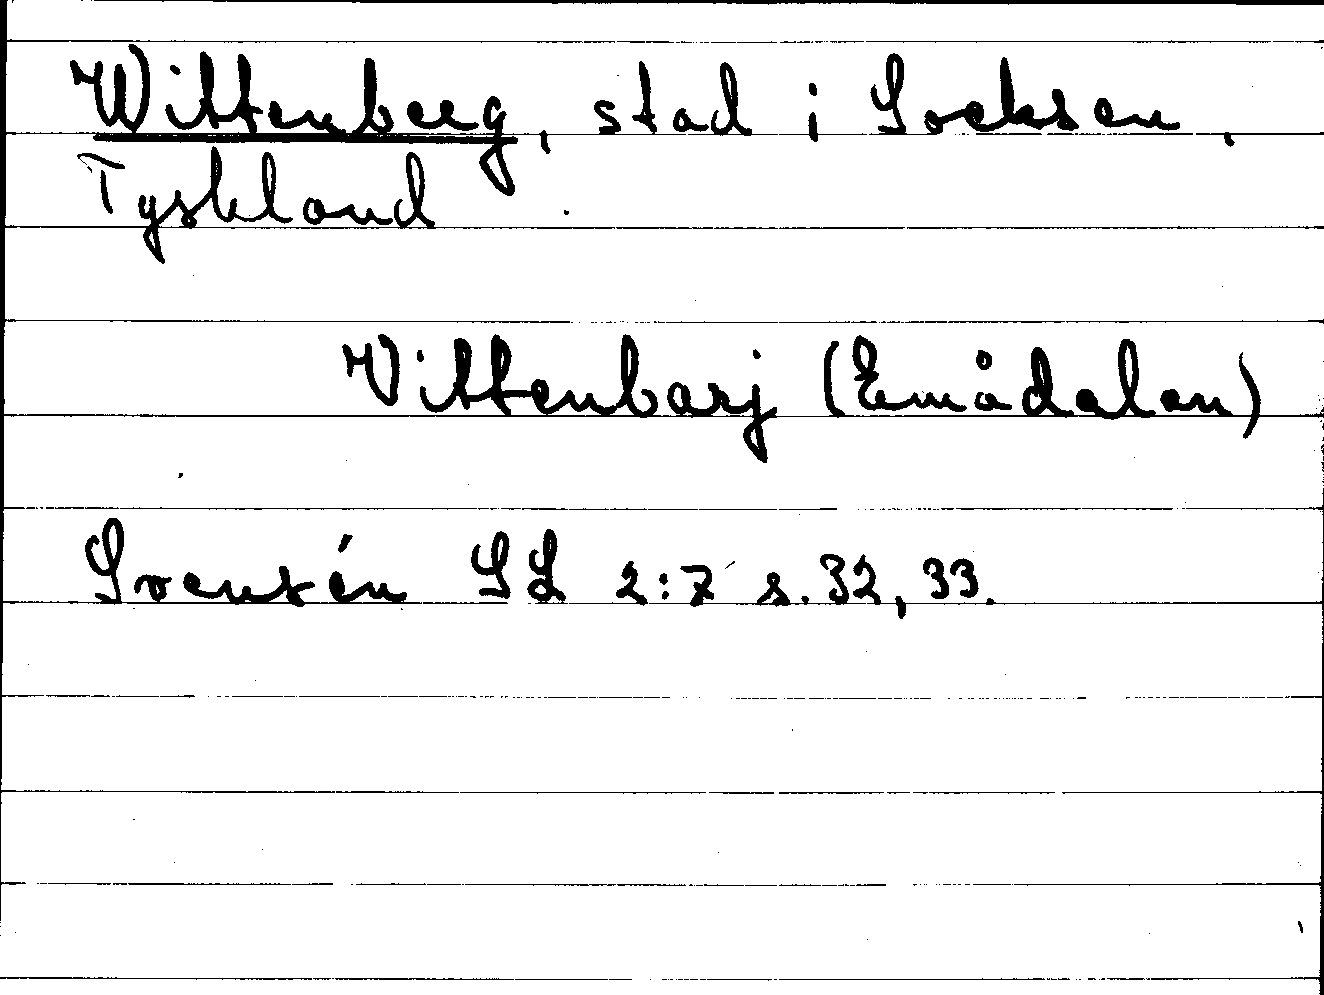 Wittenberg, stad i Sachsen,
Tyskland.
Vittenbarj (Emådalen)
Svensén SL 2:7 s. 32, 33.